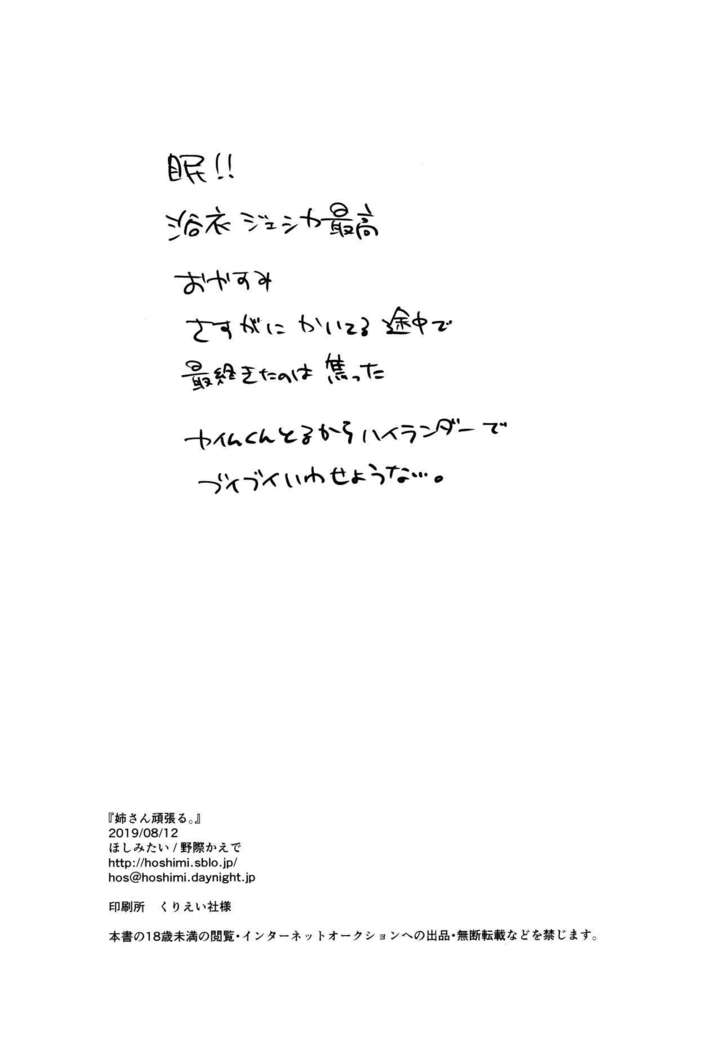 眠!!
浴衣ジェシカ最高
おやすみ
さすがに かいてる 途中で
最終きたのは 焦った
ケイムくんとるからハイランダーで
ブイブイいわせような…。
『姉さん頑張る。』
2019/08/12
ほしみたい / 野際かえで
http://hoshimi.sblo.jp/
hos@hoshimi.daynight.jp
印刷所　くりえい社様
本書の18歳未満の閲覧・インターネットオークションへの出品・無断転載などを禁じます。